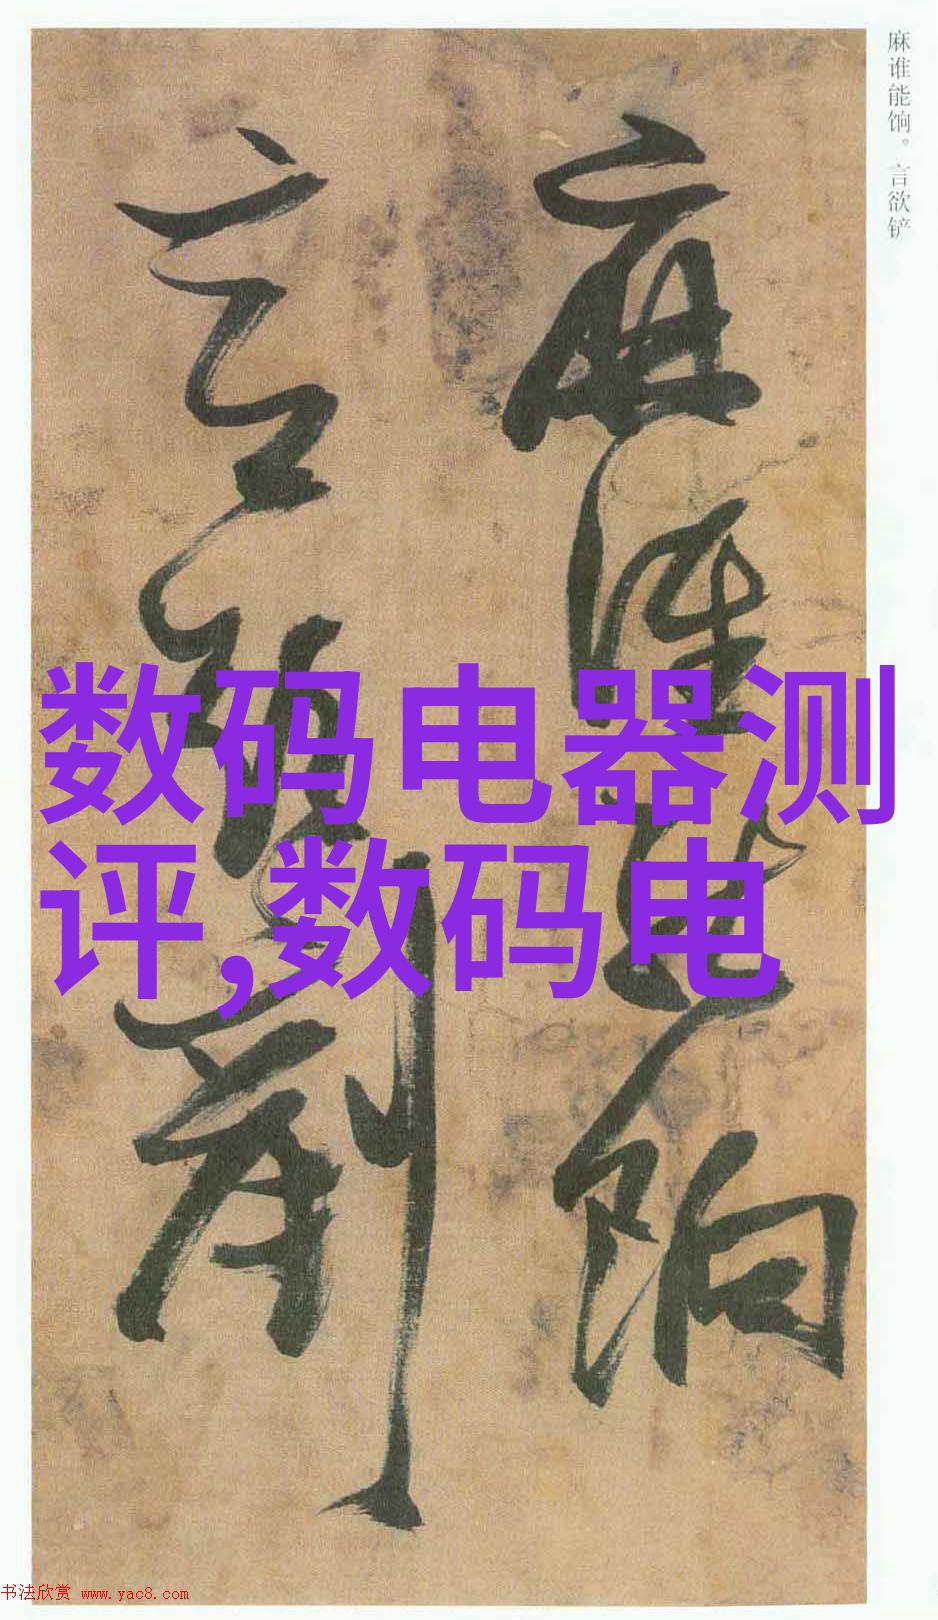 麻谁能饷。言欲铲
麻谁能饷
言欲剷
数码电器测
评,数码电
书法欣赏 www.yac8.com